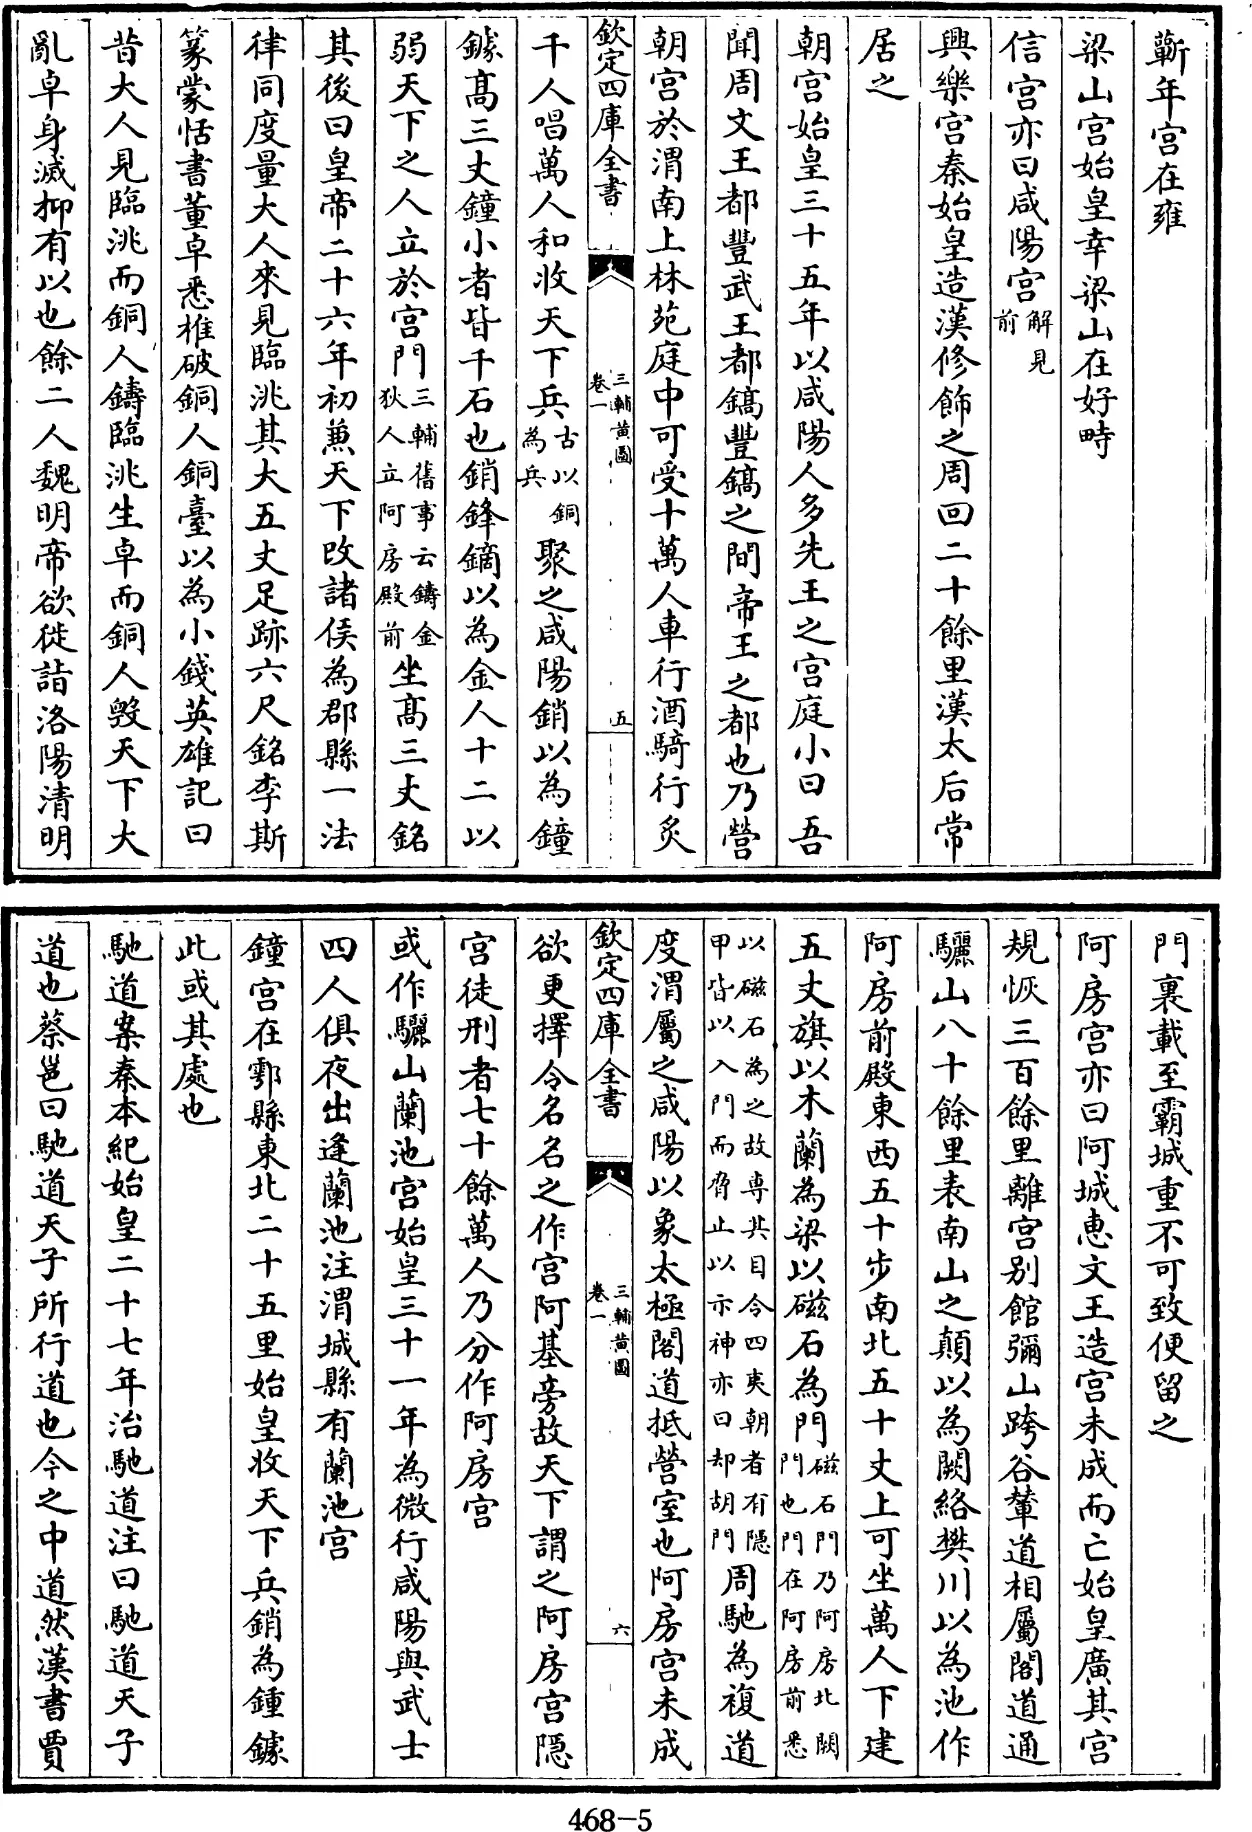 蘄年宫在雍
梁山宫始皇幸梁山在好畤
信宫亦曰咸陽宫解見前
興樂宫秦始皇造漢修飾之周回二十餘里漢太后常
居之
朝宫始皇三十五年以咸陽人多先王之宫庭小曰吾
聞周文王都豐武王都鎬豐鎬之間帝王之都也乃營
朝宫於渭南上林苑庭中可受十萬人車行酒騎行炙
欽定四庫全書 三輔黄圖卷一 五
千人唱萬人和收天下兵古以銅為兵聚之咸陽銷以為鐘
鐻髙三丈鐘小者皆千石也銷鋒鏑以為金人十二以
弱天下之人立於宫門三輔舊事云鑄金狄人立阿房殿前坐髙三丈銘
其後曰皇帝二十六年初兼天下改諸侯為郡縣一法
律同度量大人來見臨洮其大五丈足跡六尺銘李斯
篆蒙恬書董卓悉椎破銅人銅臺以為小錢英雄記曰
昔大人見臨洮而銅人鑄臨洮生卓而銅人毁天下大
亂卓身滅抑有以也餘二人魏明帝欲徙詣洛陽清明
門裏載至霸城重不可致便留之
阿房宫亦曰阿城惠文王造宫未成而亡始皇廣其宫
規恢三百餘里離宫别館彌山跨谷輦道相屬閣道通
驪山八十餘里表南山之顛以為闕絡樊川以為池作
阿房前殿東西五十步南北五十丈上可坐萬人下建
五丈旗以木蘭為梁以磁石為門磁石門乃阿房北闕門也門在阿房前悉
以磁石為之故専其目令四夷朝者有隱甲皆以入門而脅止以示神亦曰却胡門周馳為複道
度渭屬之咸陽以象太極閣道抵營室也阿房宫未成
欽定四庫全書 三輔黄圖卷一 六
欲更擇令名名之作宫阿基旁故天下謂之阿房宫隱
宫徒刑者七十餘萬人乃分作阿房宫
或作驪山蘭池宫始皇三十一年為微行咸陽與武士
四人俱夜出逢蘭池注渭城縣有蘭池宫
鐘宫在鄠縣東北二十五里始皇收天下兵銷為鍾鐻
此或其處也
馳道案秦本紀始皇二十七年治馳道注曰馳道天子
道也蔡邕曰馳道天子所行道也今之中道然漢書賈
468-5